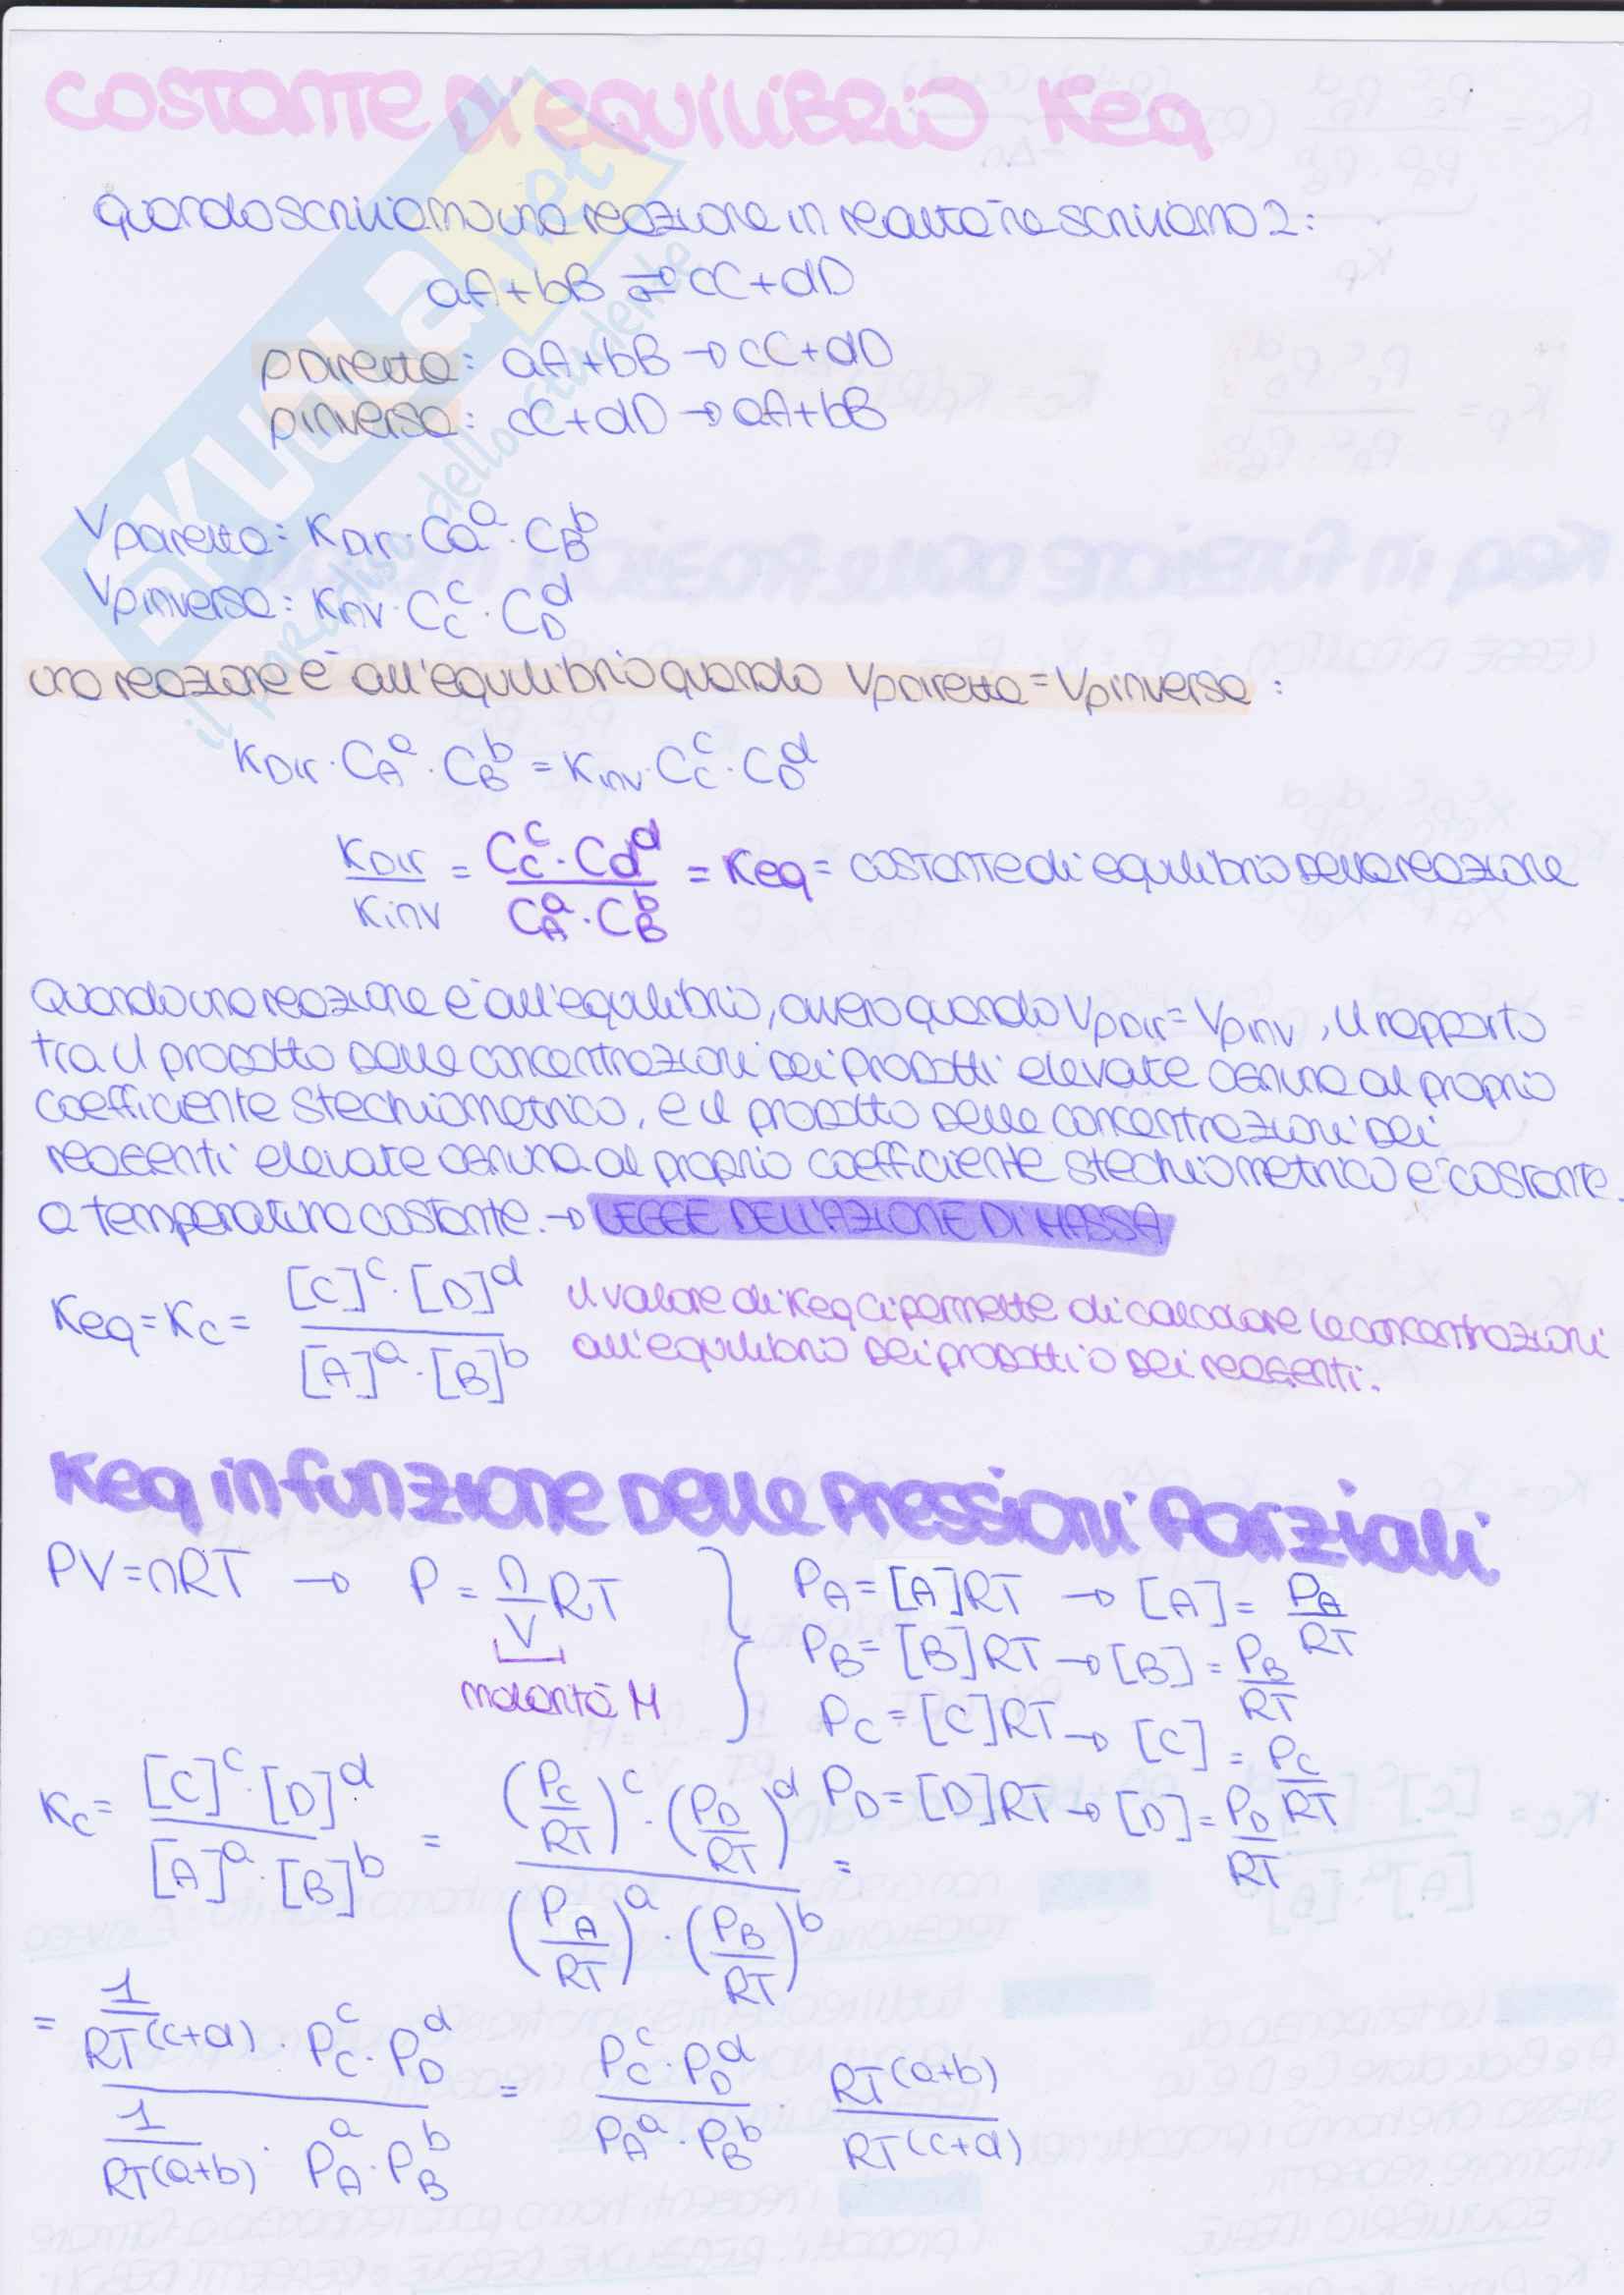 COSTANTE DI EQUILIBRIO Keq
quando scriviamo una reazione in realtà ne scriviamo 2:
aA+bB ⇌ cC+dD
ρ Diretta: aA+bB → cC+dD
ρ inversa: cC+dD → aA+bB
Vρ diretta: KDir·Ca^a·CB^b
Vρ inversa: Kinv·CC^c·CD^d
una reazione è all'equilibrio quando Vρ diretta = Vρ inversa :
KDir·CA^a·CB^b = Kinv·CC^c·CD^d
KDir/Kinv = CC^c·Cd^d / CA^a·CB^b = Keq = costante di equilibrio della reazione
Quando una reazione è all'equilibrio, ovvero quando VρDir = Vρinv, il rapporto
tra il prodotto delle concentrazioni dei prodotti elevate ognuna al proprio
coefficiente stechiometrico, e il prodotto delle concentrazioni dei
reagenti elevate ognuna al proprio coefficiente stechiometrico è costante
a temperatura costante. → LEGGE DELL'AZIONE DI MASSA
Keq = Kc = [C]^c·[D]^d / [A]^a·[B]^b il valore di Keq ci permette di calcolare le concentrazioni
all'equilibrio dei prodotti o dei reagenti.
Keq in funzione DELLE PRESSIONI PARZIALI
PV=nRT → P = n/V RT } PA=[A]RT → [A]= PA/RT
PB=[B]RT → [B]= PB/RT
molarità M
PC=[C]RT → [C]= PC/RT
PD=[D]RT → [D]= PD/RT
Kc= [C]^c·[D]^d / [A]^a·[B]^b = (PC/RT)^c·(PD/RT)^d / (PA/RT)^a·(PB/RT)^b =
= 1/RT(c+d) · PC^c·PD^d / 1/RT(a+b) · PA^a·PB^b = PC^c·PD^d / PA^a·PB^b · RT(a+b) / RT(c+d)
SKUOLA.net
il paradiso dello studente